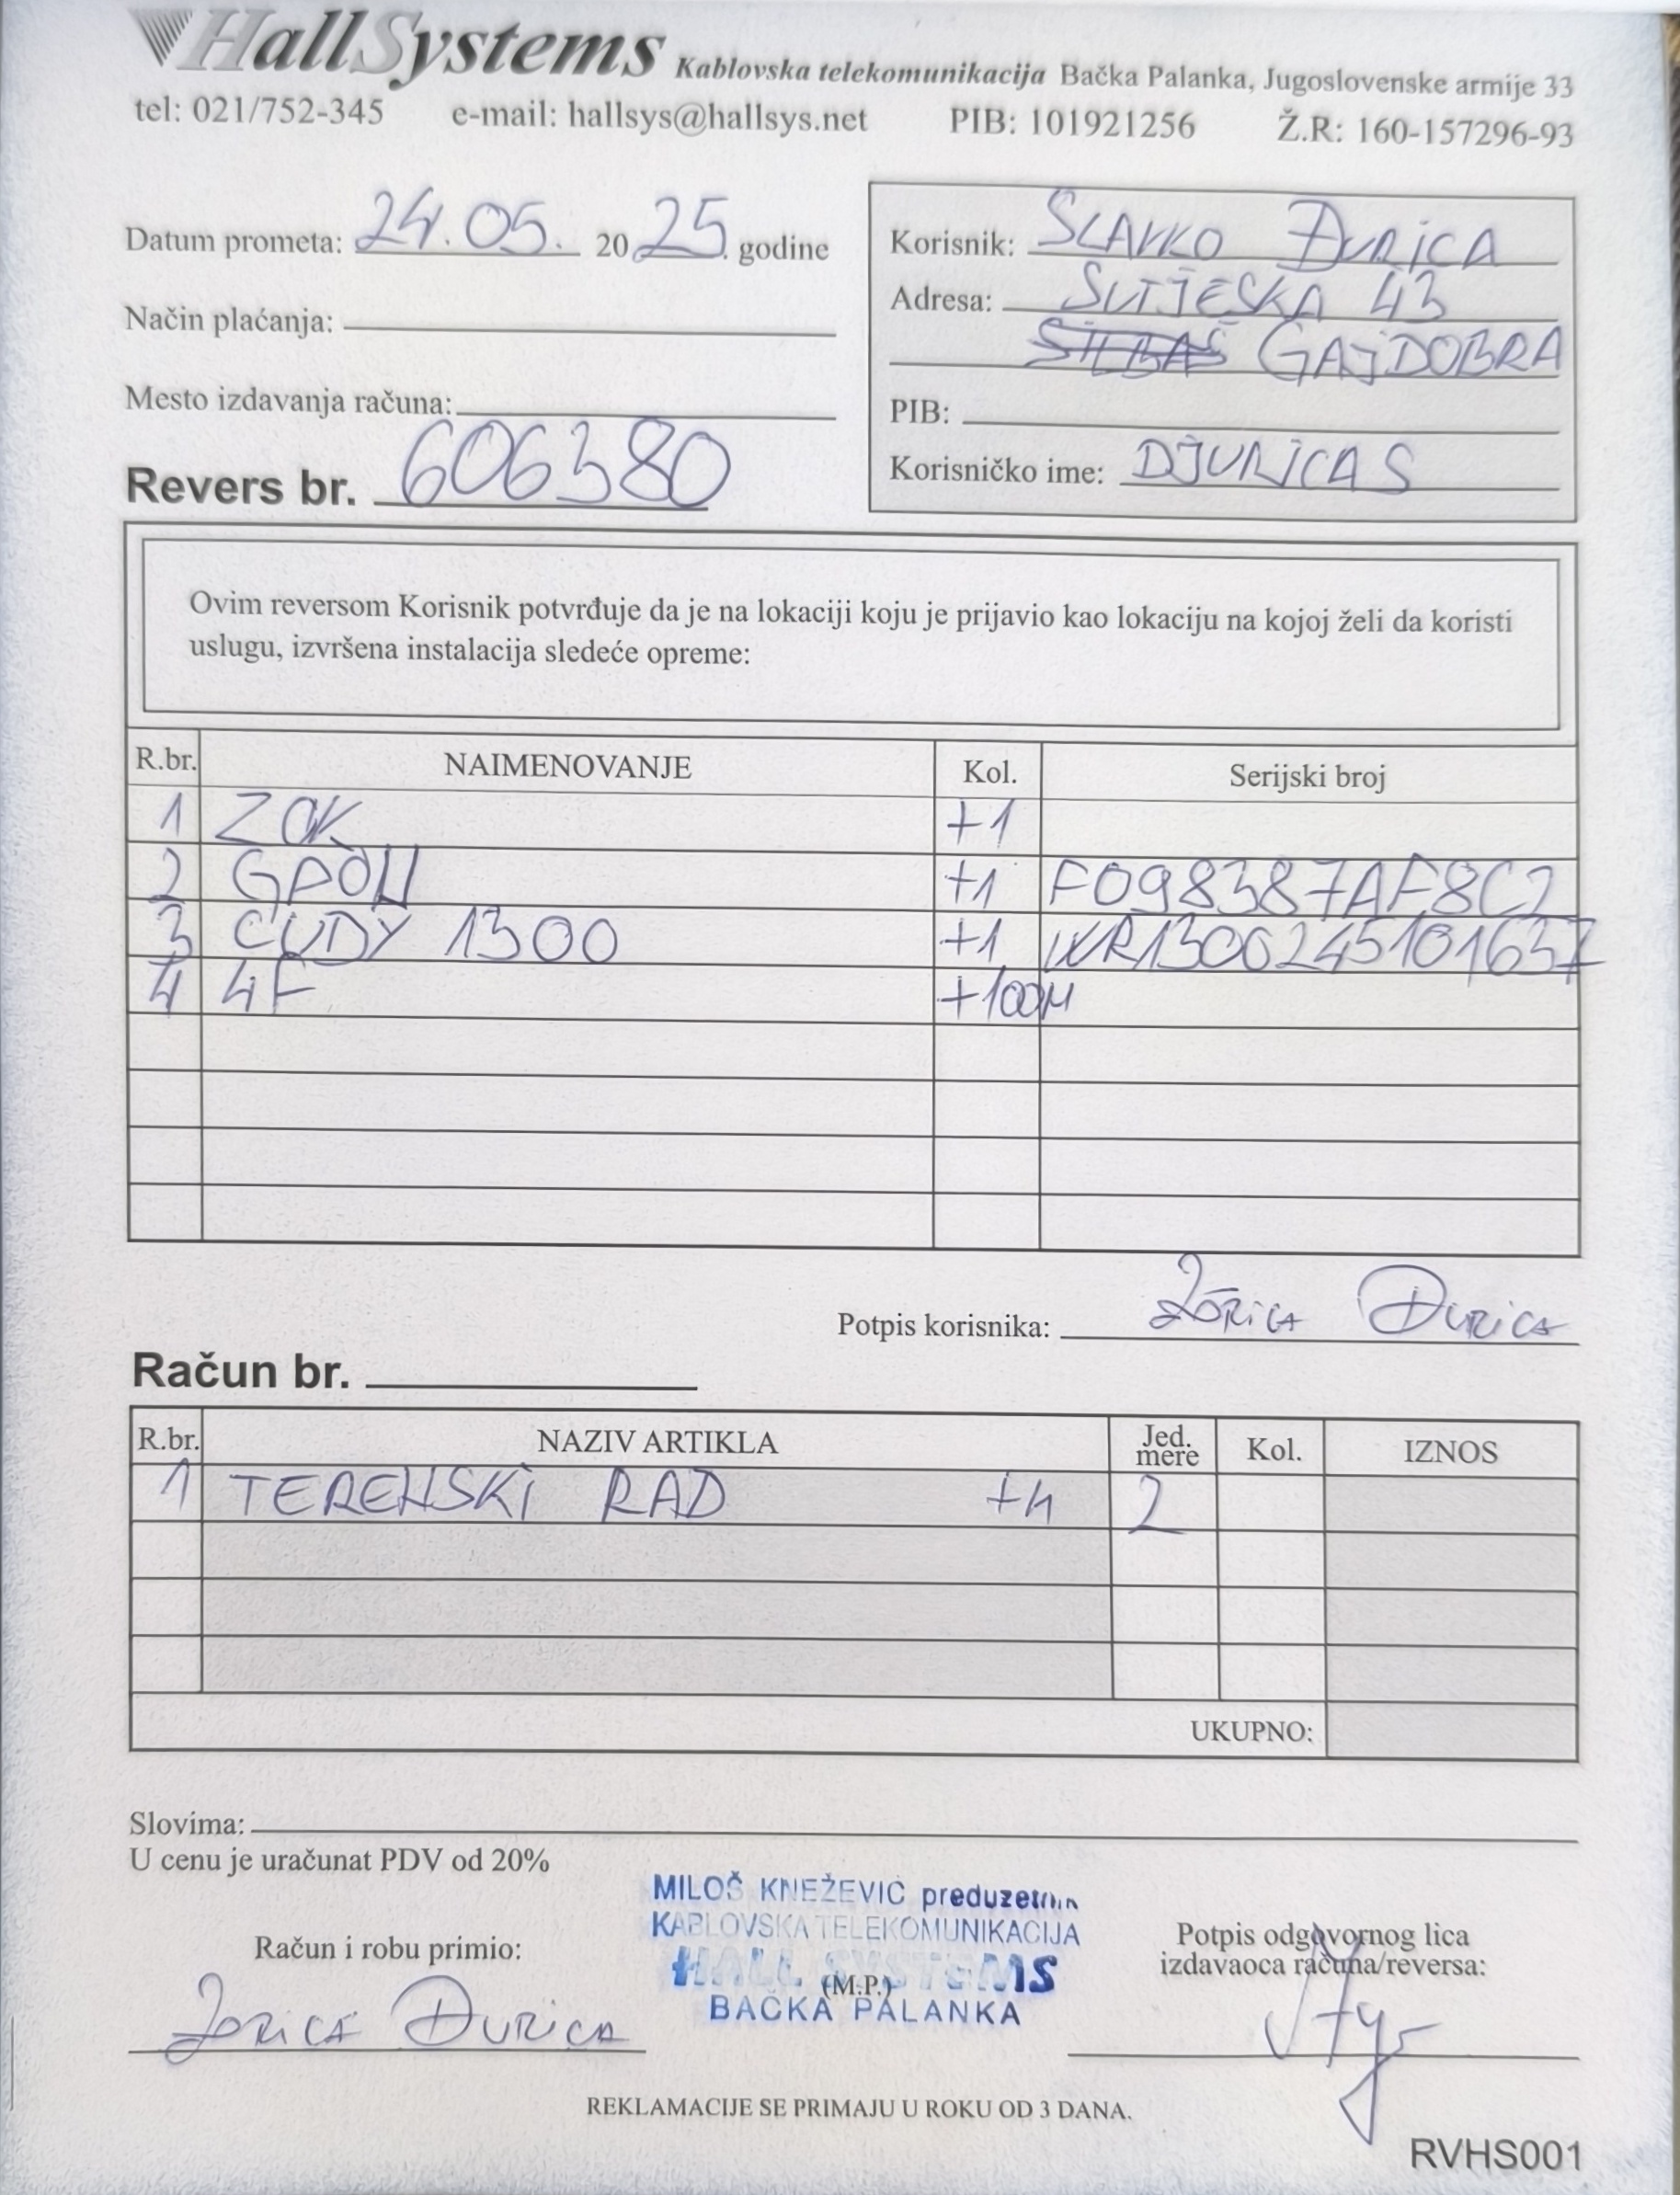 HallSystems Kablovska telekomunikacija Bačka Palanka, Jugoslovenske armije 33
tel: 021/752-345 e-mail: hallsys@hallsys.net PIB: 101921256 Ž.R: 160-157296-93
Datum prometa: 24.05. 2025. godine
Način plaćanja:
Mesto izdavanja računa:
Revers br. 606380
Korisnik: SLAVKO ĐURICA
Adresa: SUTJESKA 43
SILBAŠ GAJDOBRA
PIB:
Korisničko ime: DJURICAS
Ovim reversom Korisnik potvrđuje da je na lokaciji koju je prijavio kao lokaciju na kojoj želi da koristi
uslugu, izvršena instalacija sledeće opreme:
R.br. NAIMENOVANJE Kol. Serijski broj
1 ZOK +1
2 GPON +1 F098387AF8C2
3 CUDY 1300 +1 WR1300245101637
4 4F +100M
Potpis korisnika: Zorica Đurica
Račun br.
R.br. NAZIV ARTIKLA Jed. mere Kol. IZNOS
1 TERENSKI RAD +h 2
UKUPNO:
Slovima:
U cenu je uračunat PDV od 20%
MILOŠ KNEŽEVIĆ preduzetnik
KABLOVSKA TELEKOMUNIKACIJA
HALL SYSTEMS
(M.P.)
BAČKA PALANKA
Račun i robu primio:
Zorica Đurica
Potpis odgovornog lica
izdavaoca računa/reversa:
REKLAMACIJE SE PRIMAJU U ROKU OD 3 DANA.
RVHS001